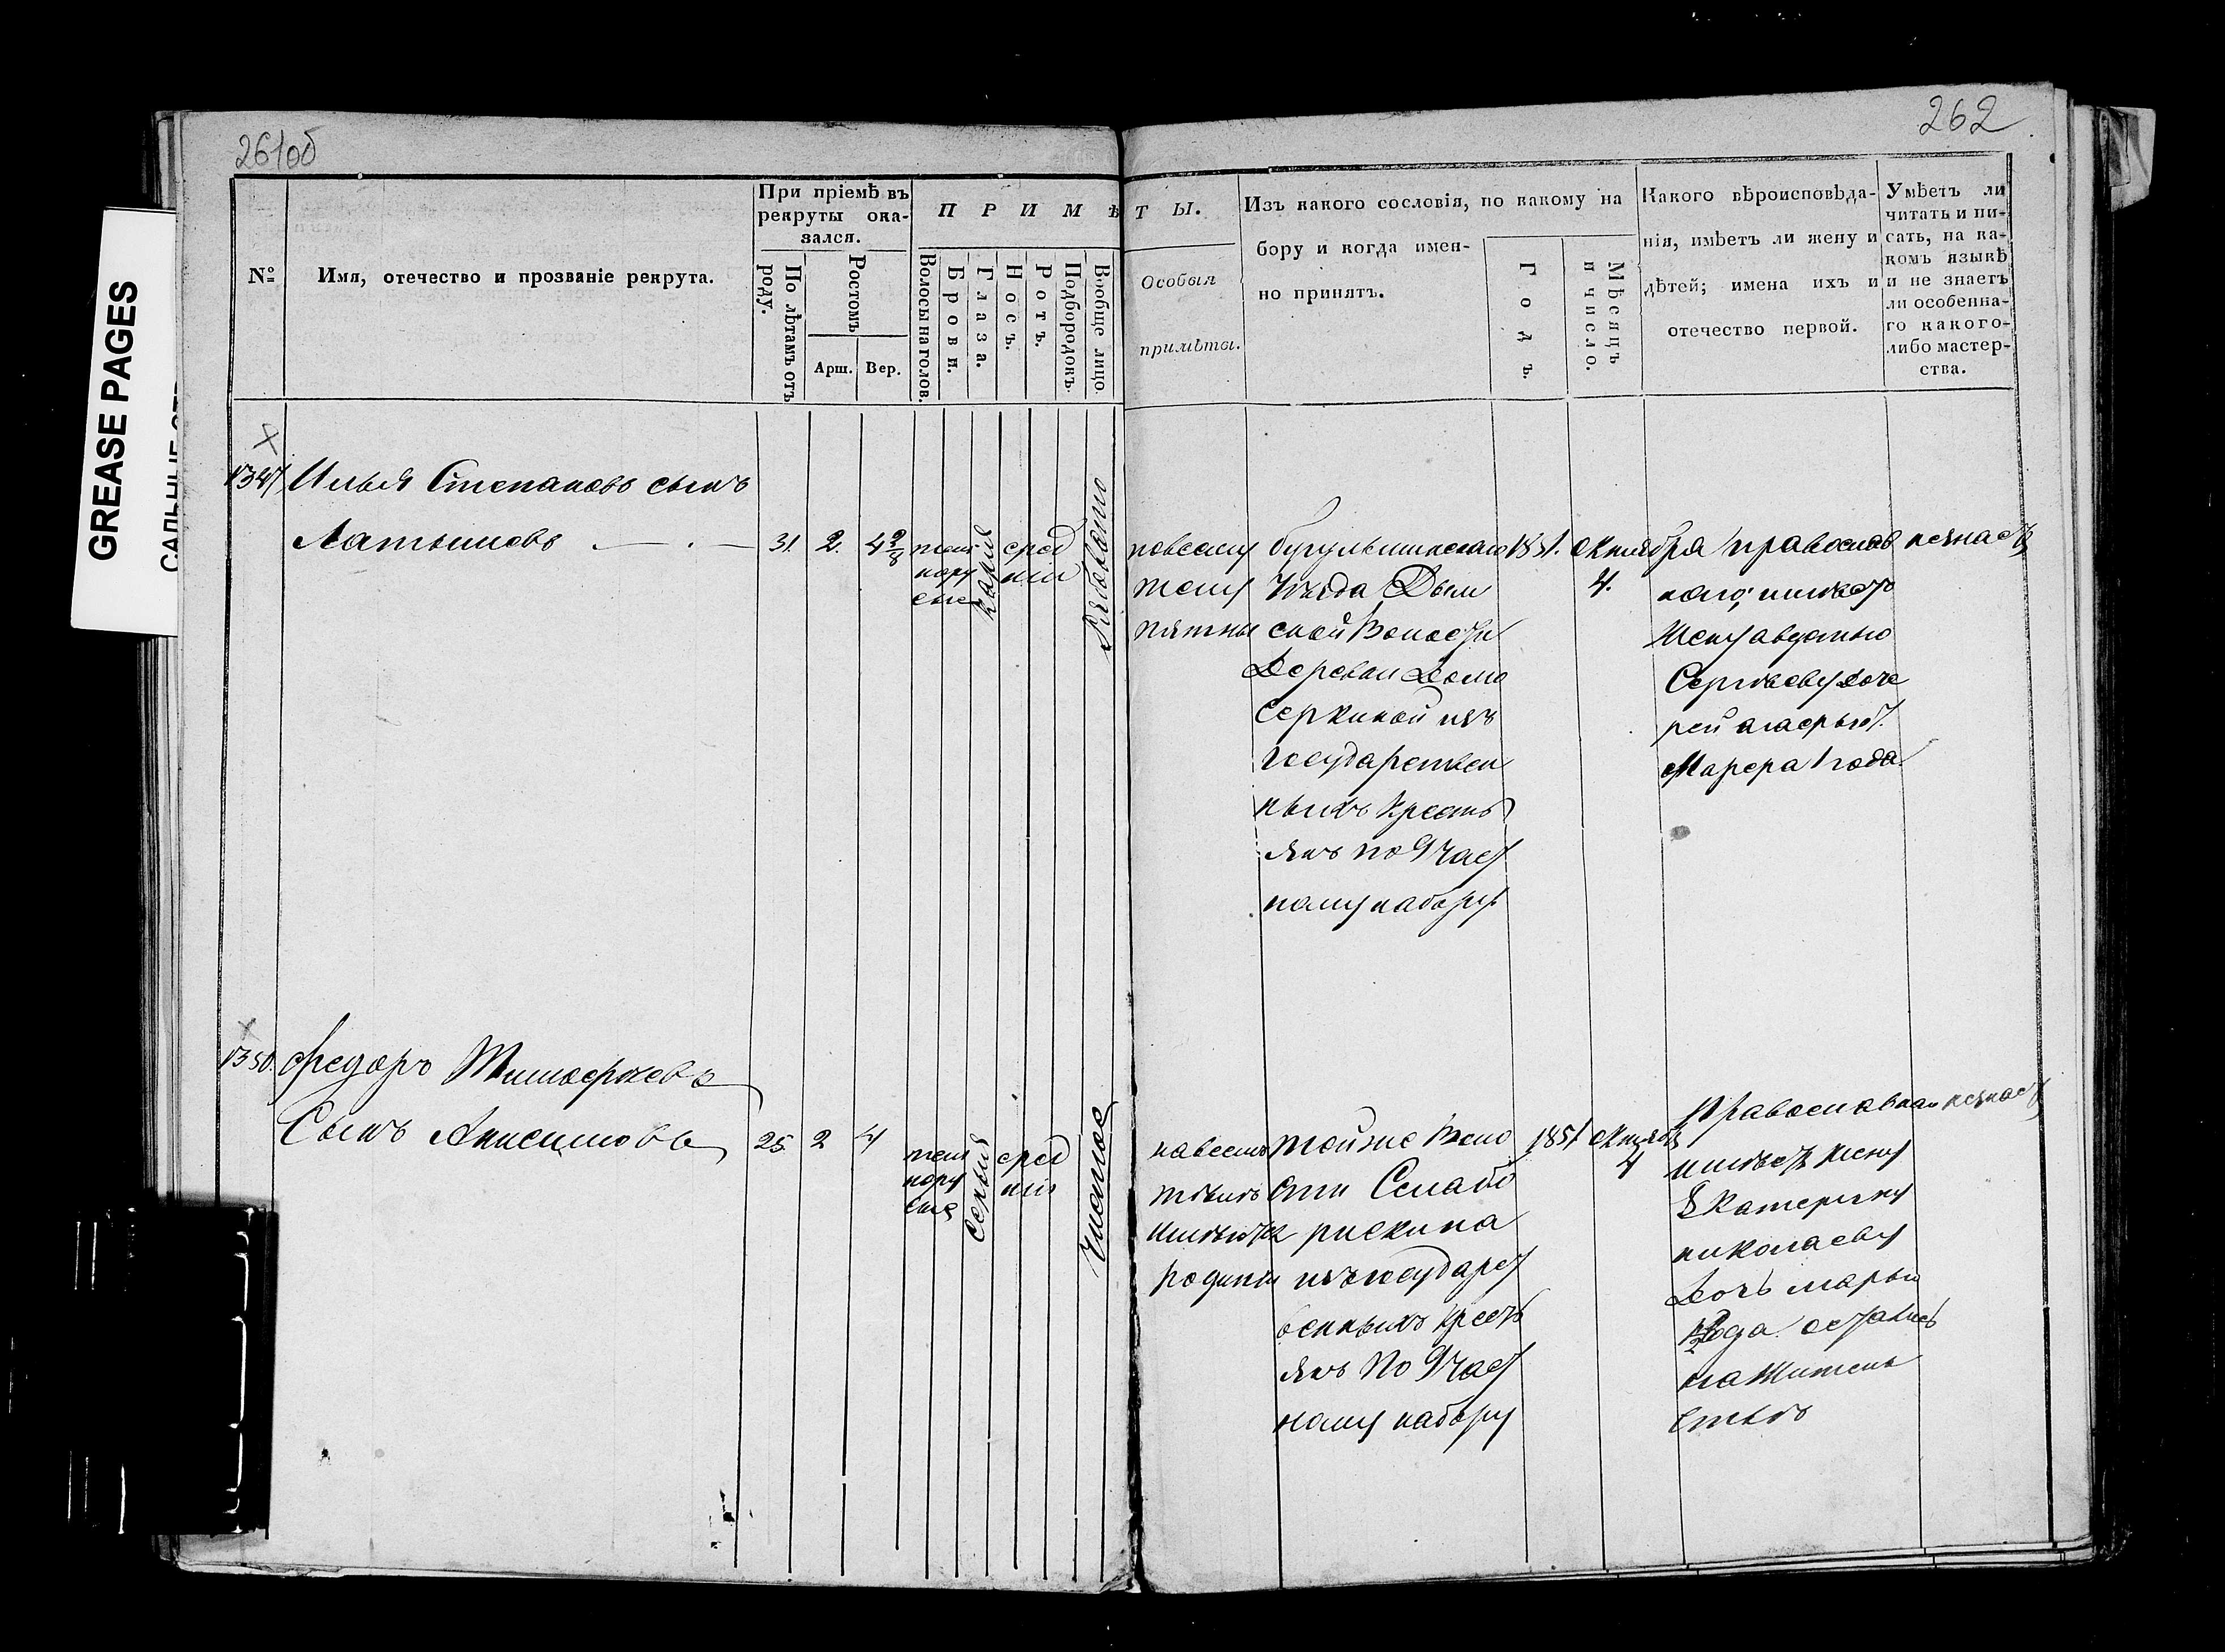 261об
262
GREASE PAGES
№
Имя, отечество и прозваніе рекрута.
При пріемѣ въ
рекруты ока-
зался.
По лѣтамъ отъ
роду.
Ростомъ
Арш.
Вер.
ПРИМѢТЫ.
Волосы на голов.
Брови.
Глаза.
Носъ.
Ротъ.
Подбородокъ.
Вообще лицо.
Особыя
примѣты.
Изъ какого сословія, по какому на
бору и когда имен-
но принятъ.
Годъ.
Мѣсяцъ
и число.
Какого вѣроисповѣда-
нія, имѣетъ ли жену и
дѣтей; имена ихъ и
отечество первой.
Умѣетъ ли
читать и пи-
сать, на ка-
комъ языкѣ
и не знаетъ
ли особенна-
го какого-
либо мастер-
ства.
Илья Степановъ сынъ
Латышовъ
31. 2. 4 2/8
тем
нору
сые
кария
сред
нiи
Рябовато
повсему
телу
пятны
бугульминскаго
Уѣзда Дым
ской Волости
Деревни Домо
серкиной изъ
государствен
ныхъ кресть
янъ по 9 част
ному набору
1851. октября
4.
православ
наго; имѣетъ
жену авдотью
Сергѣеву доче
рей
Марфа 1 года
незнаетъ
1350.
Федоръ Тимофѣевъ
Сынъ Анисимовъ
25 2 4
тем
нору
сые
серыя
сред
нiи
Чистое
тойже Воло
сти Села бо
рискина
изъ государст
венныхъ крест
янъ По 9 част
ному набору
родинки
1851 октябр
4
Православнаго незнаетъ
имѣетъ жену
Екатерину
николаеву
Дочь марью
года остались
на жител
ствѣ